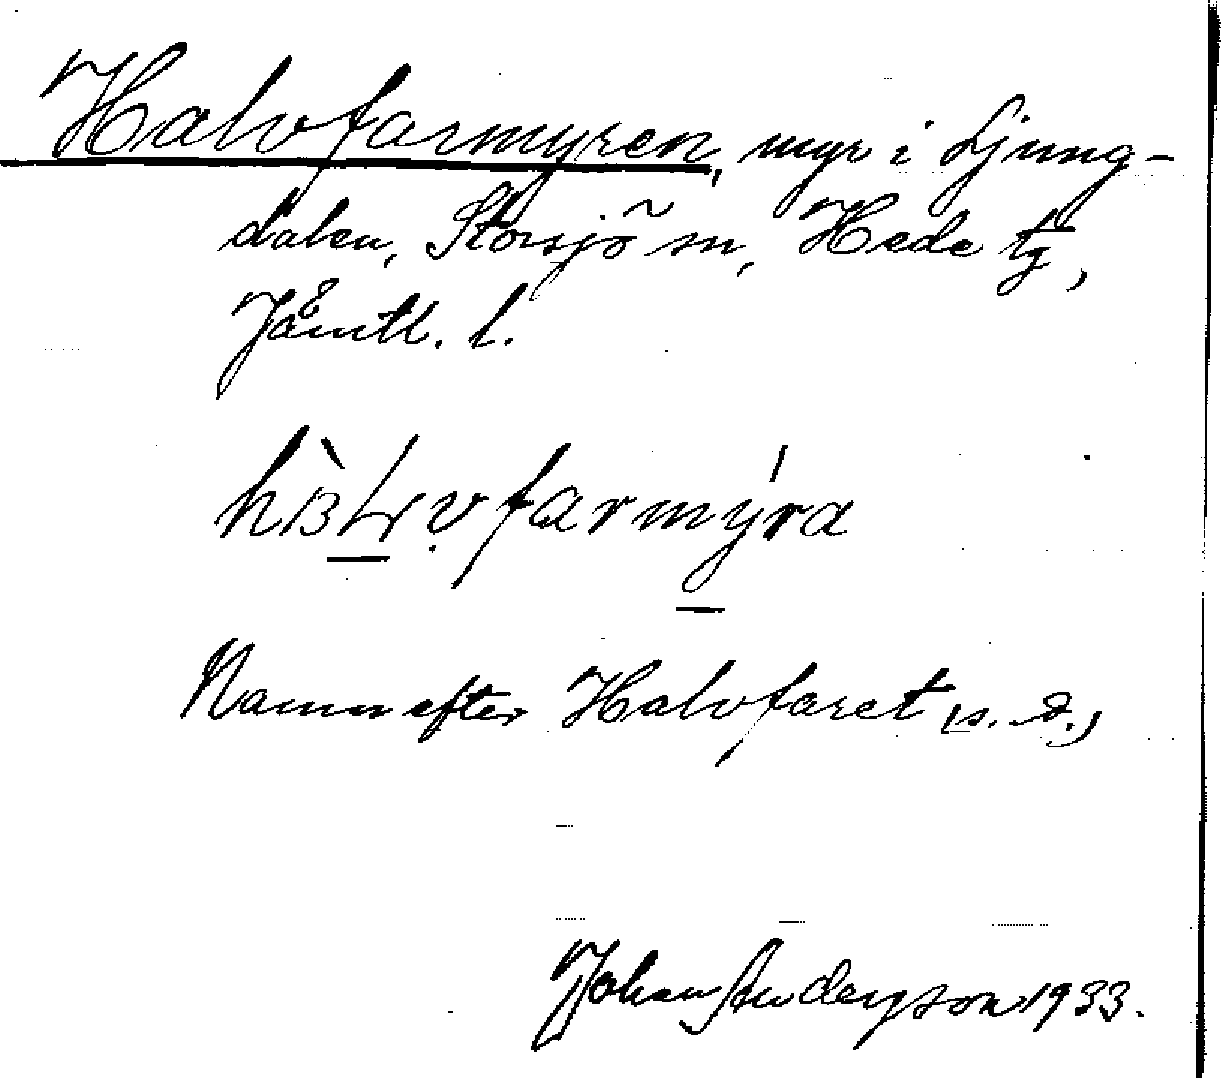 Halvfarmyren, myr i Ljung-
dalen, Storsjö sn, Hede tg,
Jämtl. l.
farmýra
Namn efter Halvfaret (s. d.)
Johan Anderson 1933.